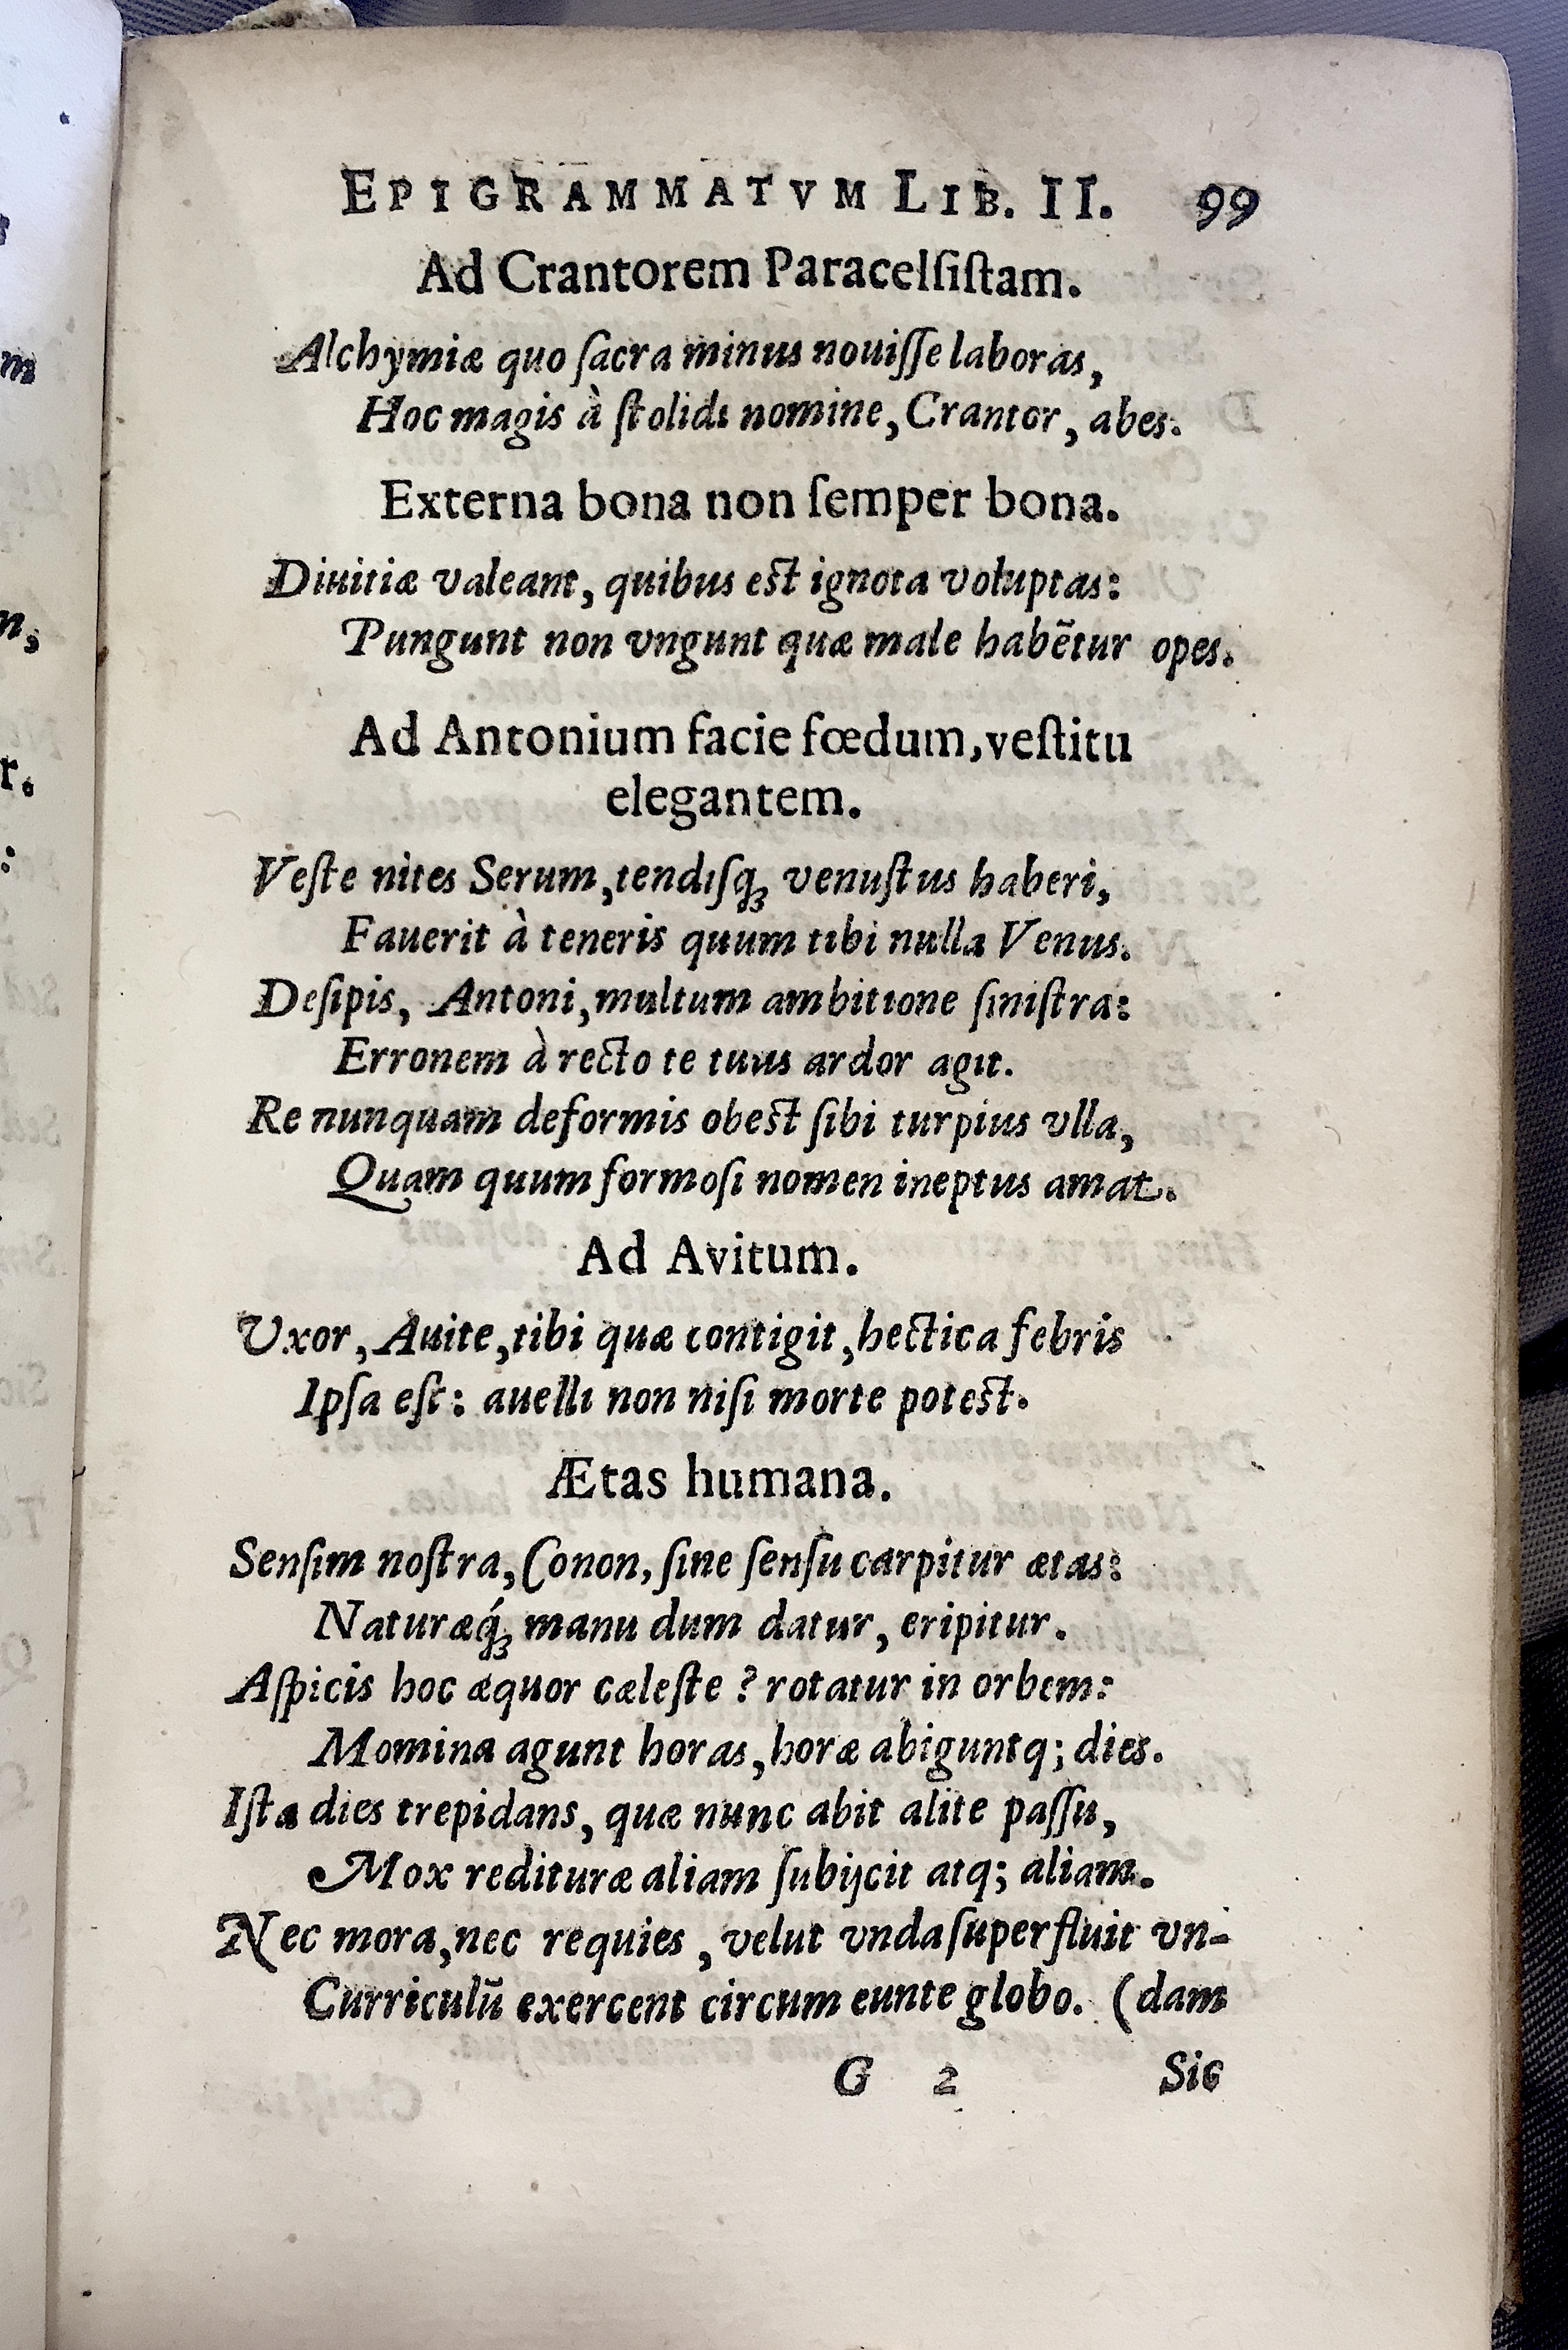 EPIGRAMMATVM LIB. II. 99
Ad Crantorem Paracelſiſtam.
Alchymiæ quo ſacra minus nouiſſe laboras,
Hoc magis à ſtolidi nomine, Crantor, abes.
Externa bona non ſemper bona.
Diuitiæ valeant, quibus est ignota voluptas:
Pungunt non vngunt quæ male habẽtur opes.
Ad Antonium facie fœdum, veſtitu
elegantem.
Veſte nites Serum, tendiſq́ꝫ venuſtus haberi,
Fauerit à teneris quum tibi nulla Venus.
Deſipis, Antoni, multum ambitione ſiniſtra:
Erronem à recto te tuus ardor agit.
Re nunquam deformis obest ſibi turpius vlla,
Quam quum formoſi nomen ineptus amat.
Ad Avitum.
Vxor, Auite, tibi quæ contigit, hectica febris
Ipſa eſt: auelli non niſi morte potest.
Ætas humana.
Senſim noſtra, Conon, ſine ſenſu carpitur ætas:
Naturæq́ꝫ manu dum datur, eripitur.
Aſpicis hoc æquor cæleſte? rotatur in orbem:
Momina agunt horas, horæ abiguntq; dies.
Iſta dies trepidans, quæ nunc abit alite paſſu,
Mox redituræ aliam ſubijcit atq; aliam.
Nec mora, nec requies, velut vnda ſuperfluit vn-
Curriculũ exercent circum eunte globo. (dam
G 2 Sic